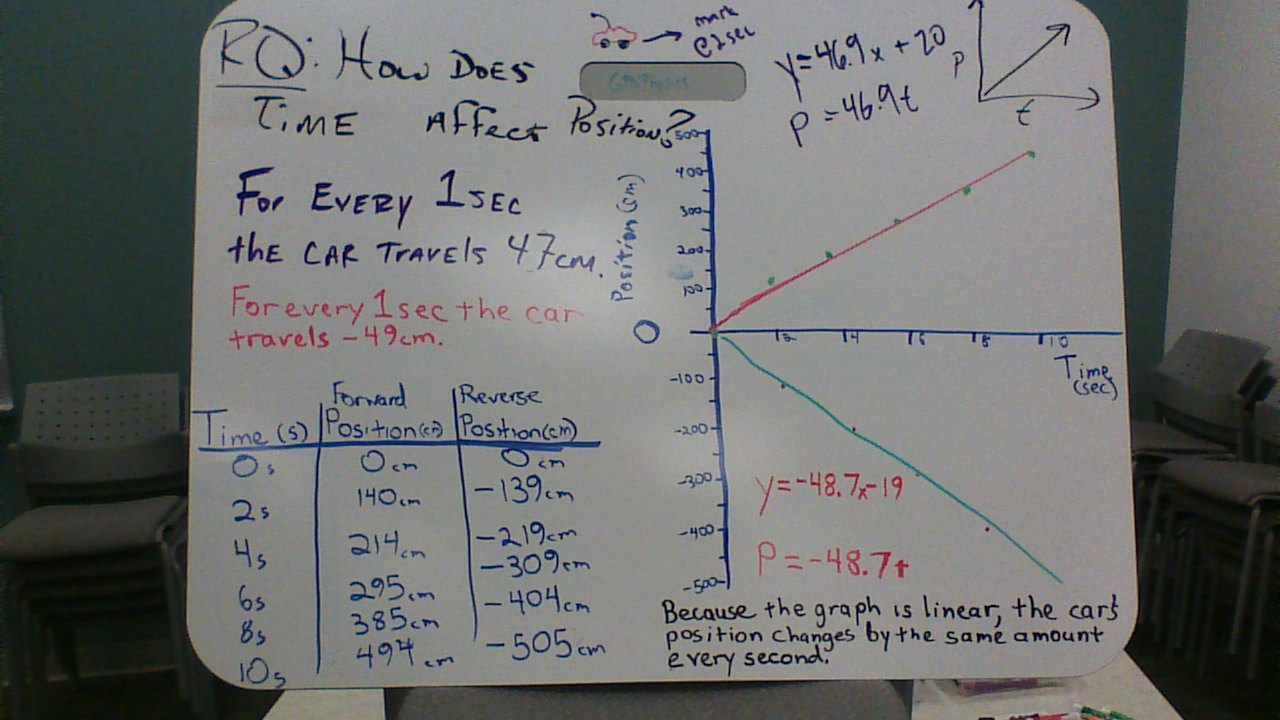 RQ: How Does
Time Affect Position?
mark
@2sec
y=46.9x+20
P=46.9t
P
t
For Every 1sec
the car travels 47cm.
For every 1sec the car
travels -49cm.
Time (s) Forward Position(cm) Reverse Position(cm)
0s 0cm 0cm
2s 140cm -139cm
4s 214cm -219cm
6s 295cm -309cm
8s 385cm -404cm
10s 494cm -505cm
Position (cm)
500
400
300
200
100
0
-100
-200
-300
-400
-500
2 4 6 8 10
Time
(sec)
y=-48.7x-19
P=-48.7t
Because the graph is linear, the car's
position changes by the same amount
every second.